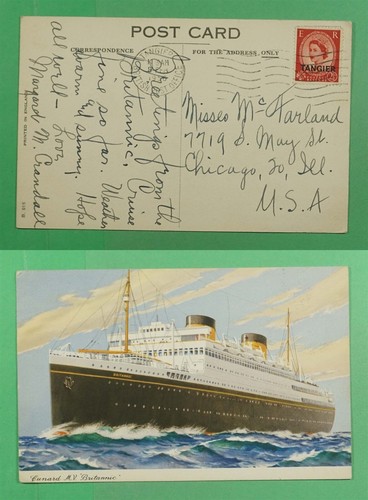 POST CARD
CORRESPONDENCE
FOR THE ADDRESS ONLY
Greetings from the
Britannic. Cruise
fine so far. Weather
warm and sunny. Hope
all well — Love
Margaret M. Crandall
E R
TANGIER
Misses McFarland
7719 S. May St.
Chicago, 20, Ill.
U.S.A
PRINTED IN ENGLAND
Cunard M.V. "Britannic"